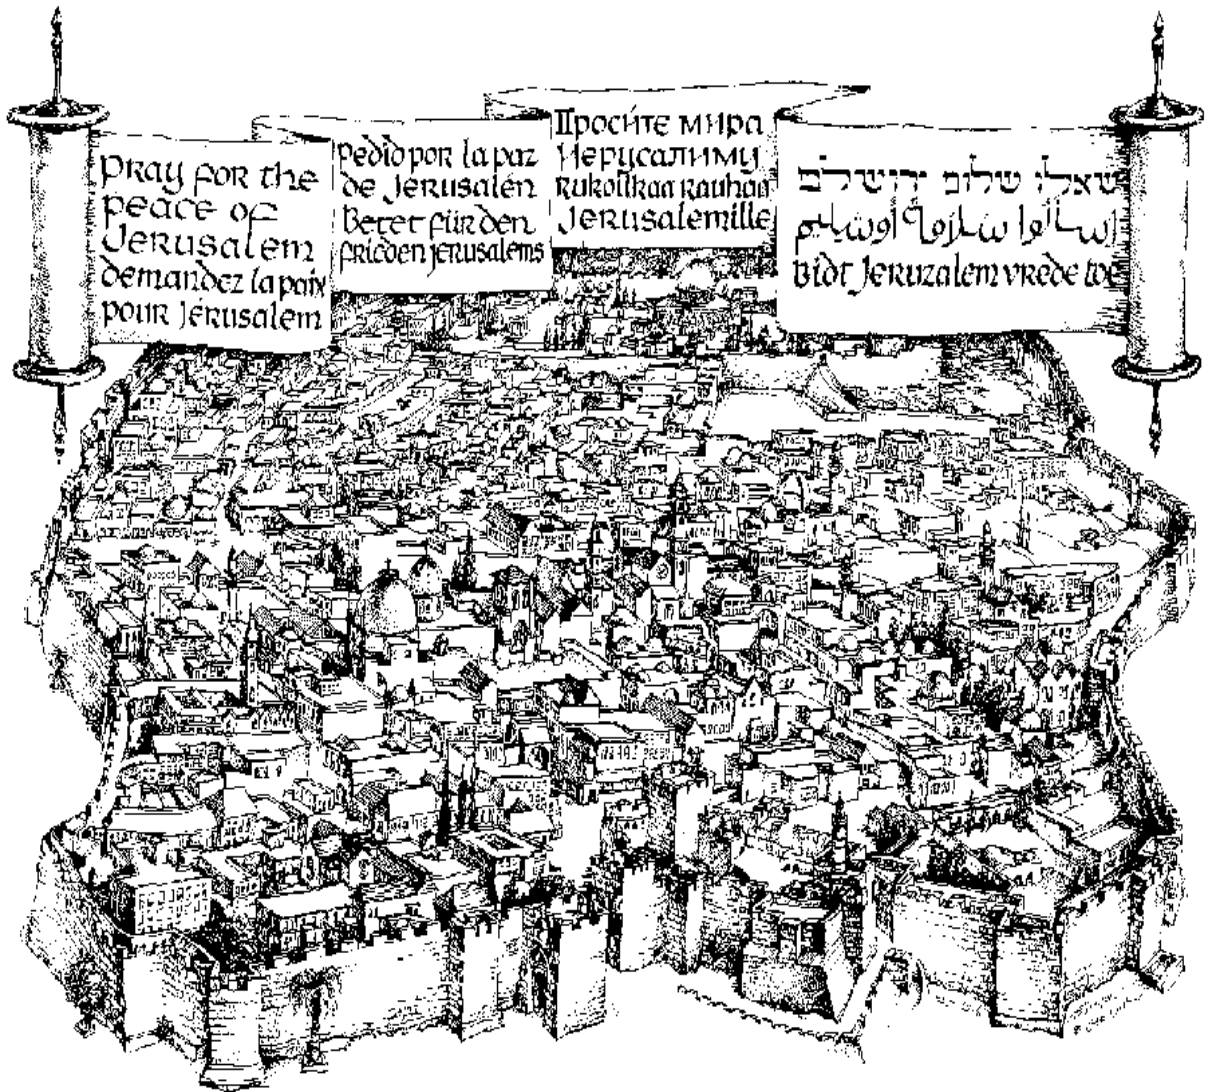 Pray for the
peace of
Jerusalem
demandez la paix
pour Jérusalem
Pedid por la paz
de Jerusalén
Betet für den
frieden jerusalems
Просите мира
Иерусалиму
Rukoilkaa rauhaa
Jerusalemille
שאלו שלום ירושלם
اسألوا سلامة اوشليم
Bidt Jeruzalem vrede toe